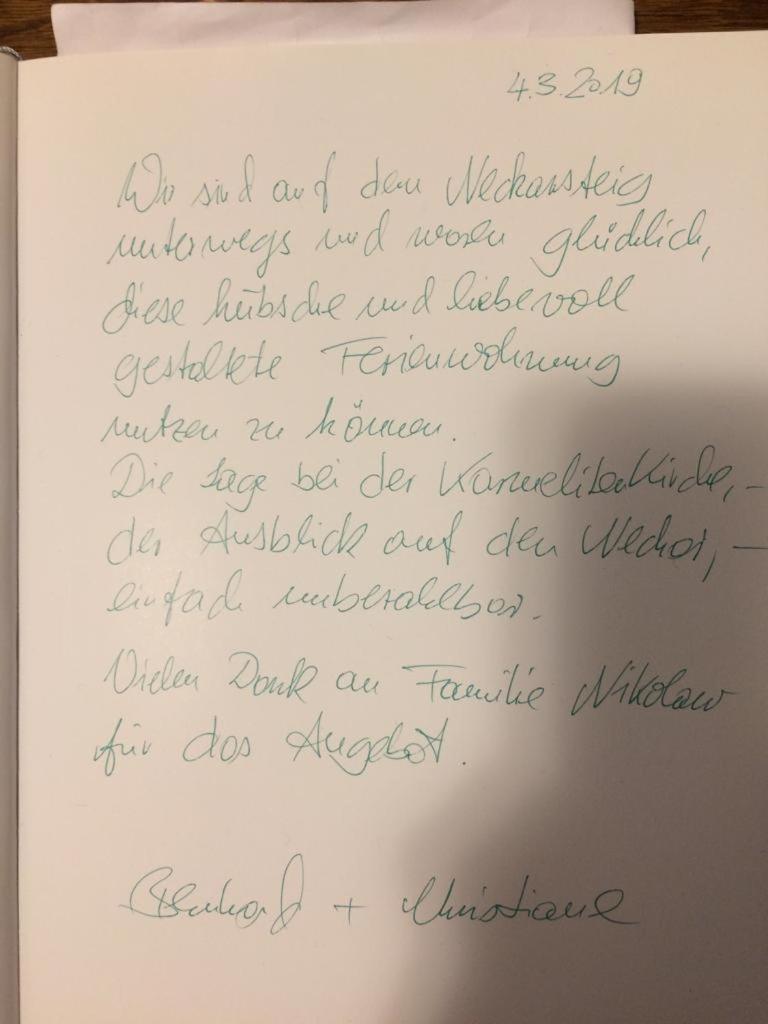 4.3.2019
Wir sind auf dem Neckarsteig
unterwegs und waren glücklich,
diese hübsche und liebevoll
gestaltete Ferienwohnung
nutzen zu können.
Die Lage bei der Karmelitenkirche, –
der Ausblick auf den Neckar, –
einfach unbezahlbar.
Vielen Dank an Familie Nikolaw
für das Angebot.
Bernhard + Christiane